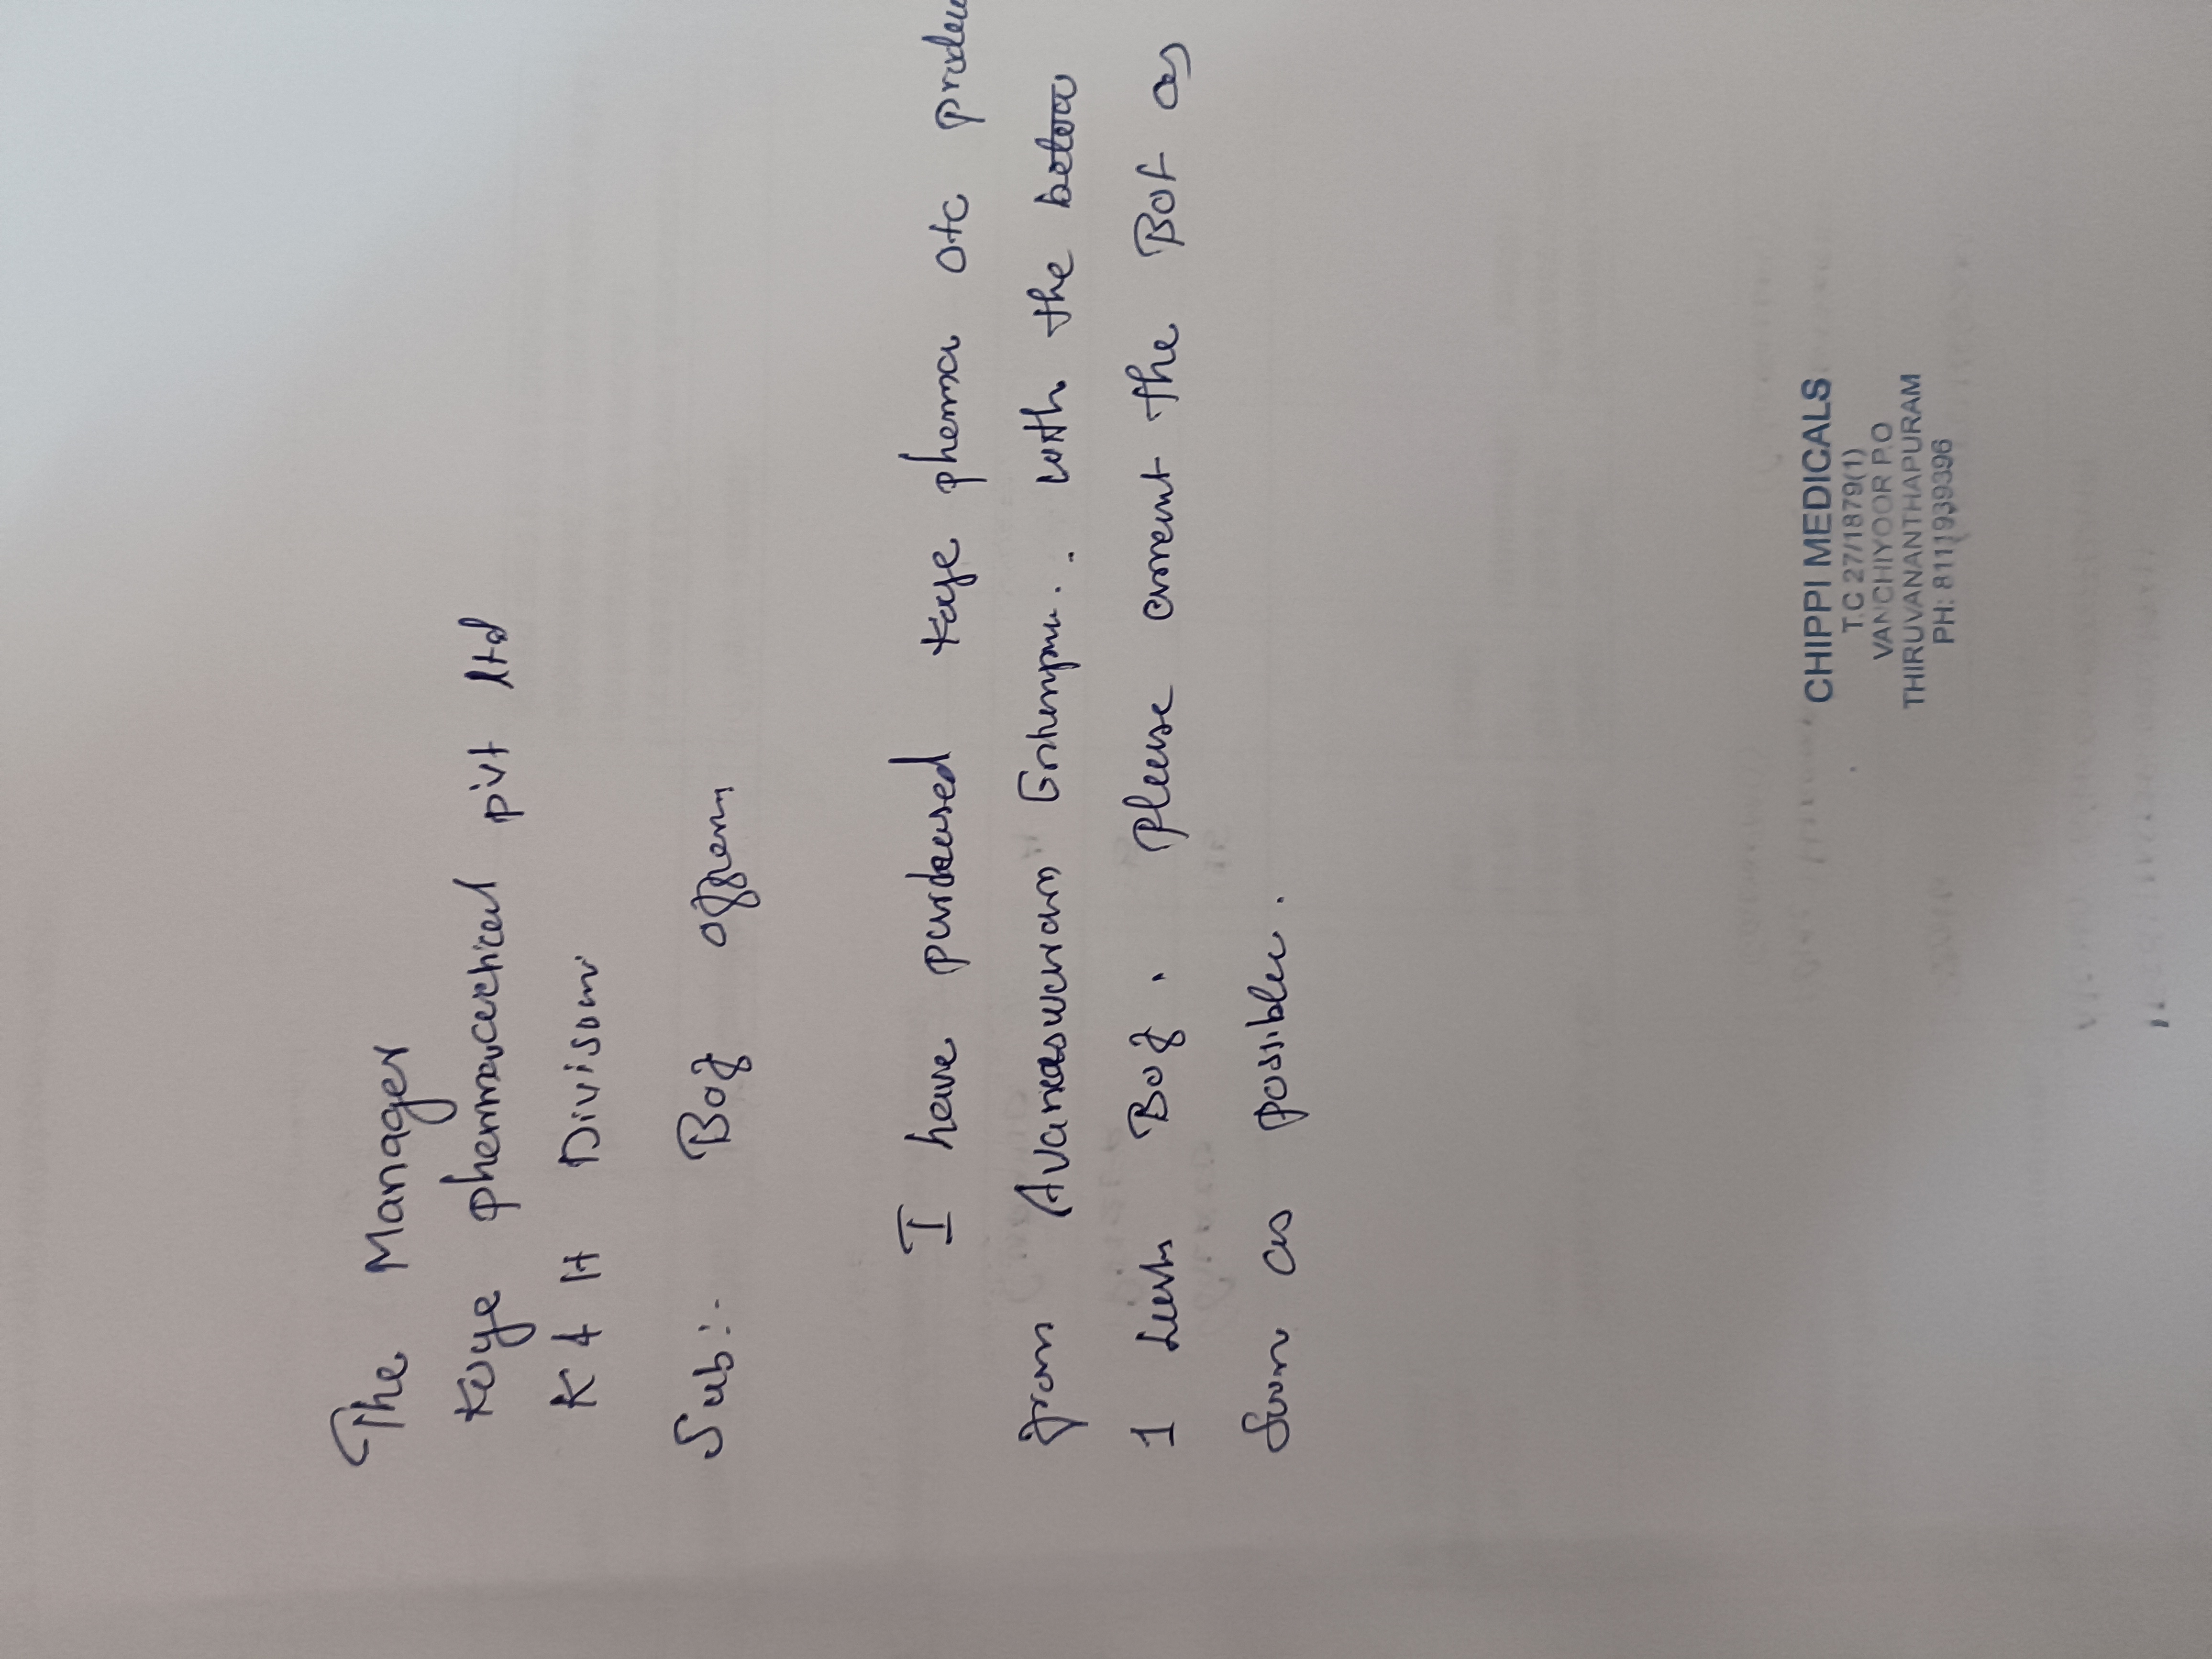 The Manager
Kaye phermacectical pivt ltd
K 4 H Divisom
Sub:- Bof offerm
I have purdeased kaye phema otc produ
from Gnhmpm. with the
1 Bof. Please arrent the Bof as
soon as possible.
CHIPPI MEDICALS
T.C 27/1879(1)
VANCHIYOOR P.O
THIRUVANANTHAPURAM
PH: 8111939396